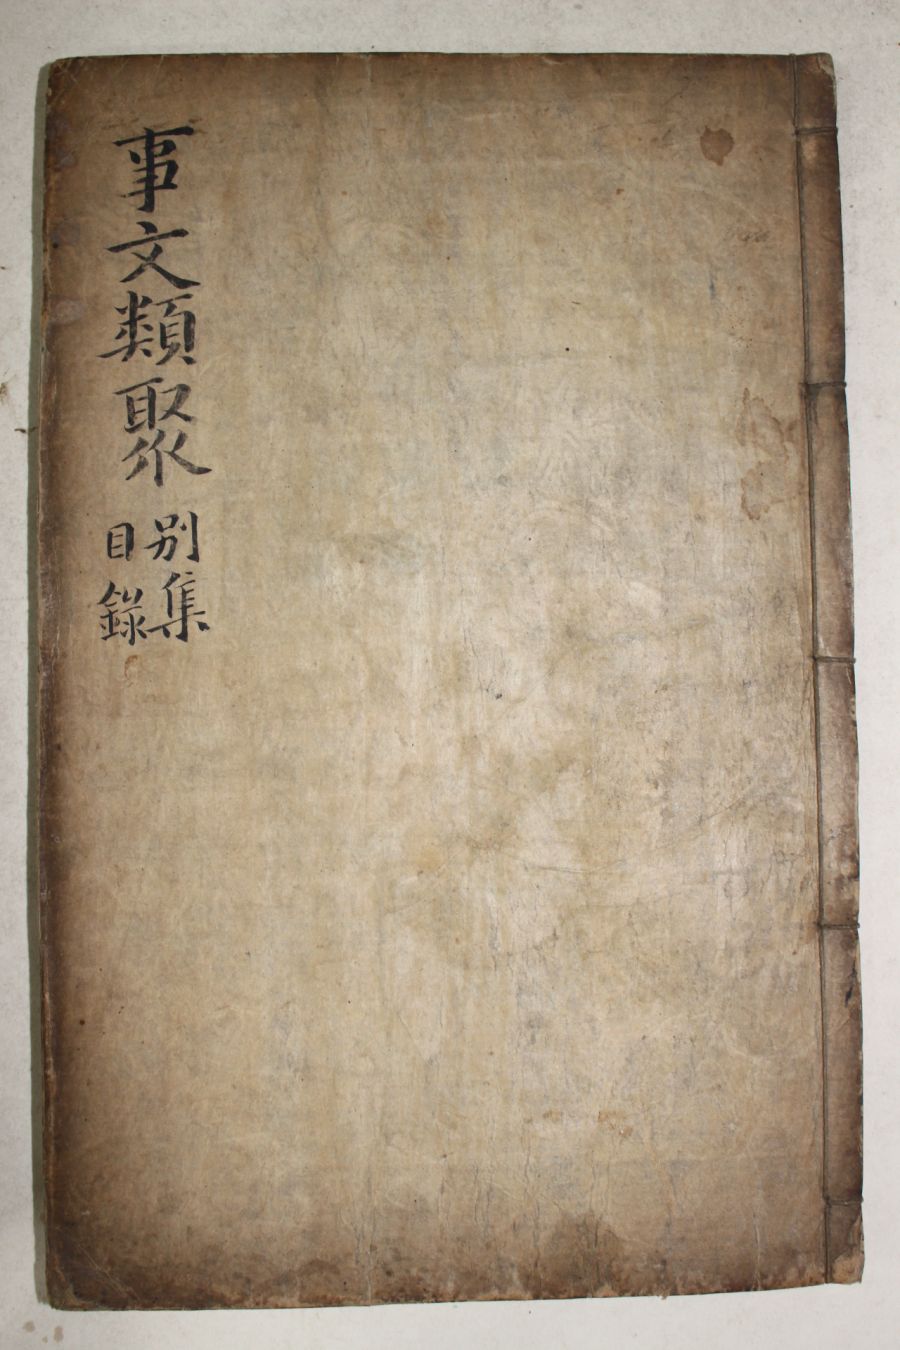 事文類聚
別集
目錄